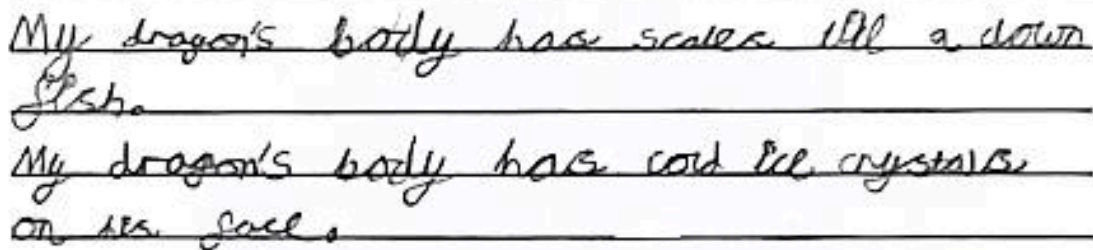 My dragon's body has scales like a clown
fish.
My dragon's body has cold ice crystals
on its face.